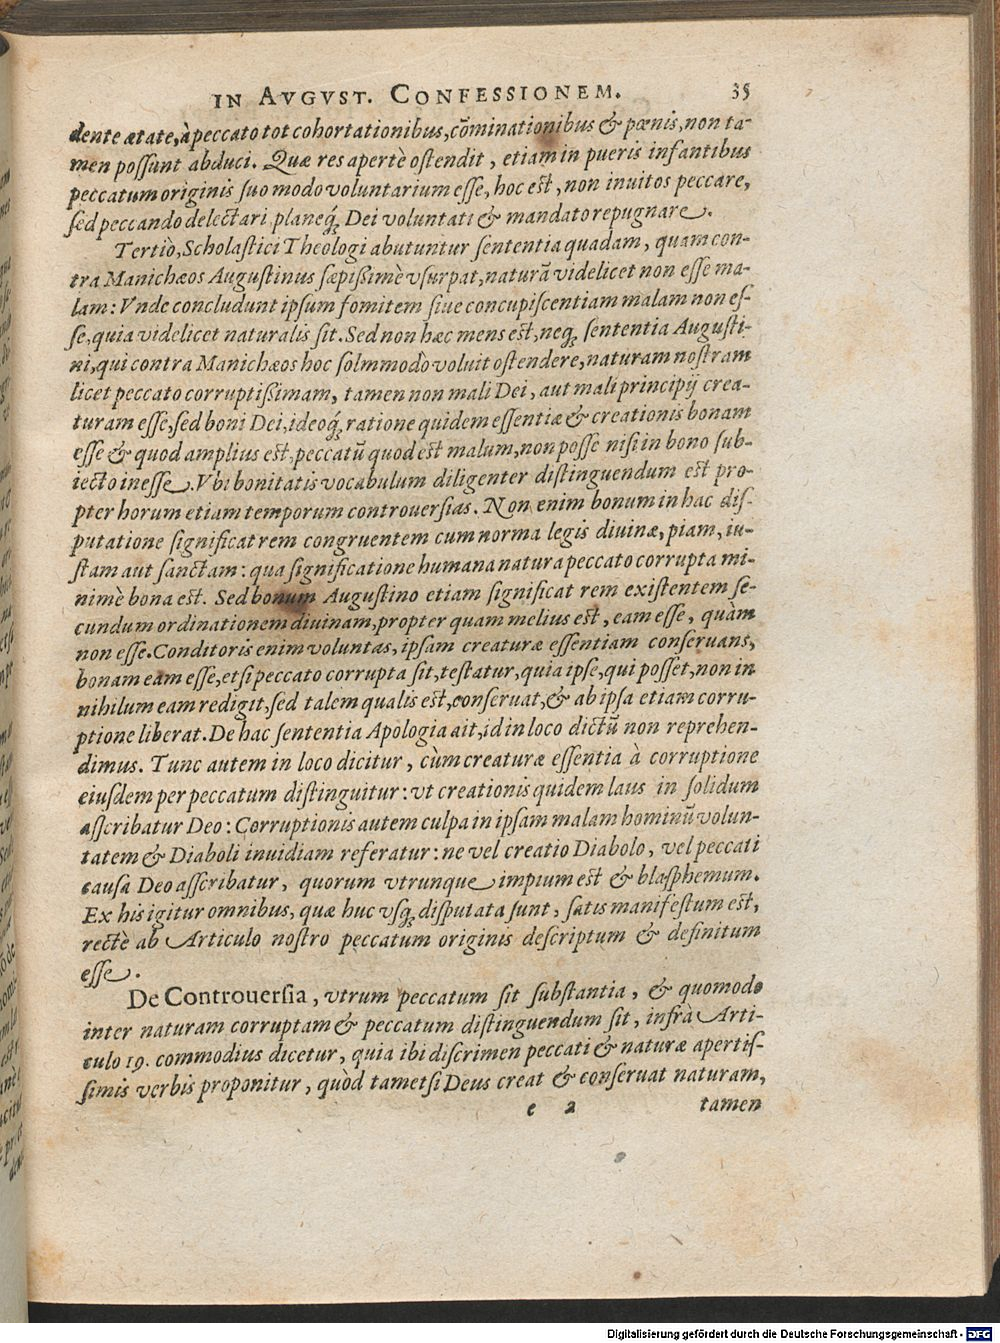 IN AVGVST. CONFESSIONEM. 35
dente ætate, à peccato tot cohortationibus, cōminationibus & pœnis, non ta-
men possunt abduci. Quæ res apertè ostendit, etiam in pueris infantibus
peccatum originis suo modo voluntarium esse, hoc est, non inuitos peccare,
sed peccando delectari planeq́; Dei voluntati & mandato repugnare.
Tertiò, Scholastici Theologi abutuntur sententia quadam, quam con-
tra Manichæos Augustinus sæpißimè vsurpat, naturā videlicet non esse ma-
lam: Vnde concludunt ipsum fomitem siue concupiscentiam malam non es-
se, quia videlicet naturalis sit. Sed non hæc mens est, neq́; sententia Augusti-
ni, qui contra Manichæos hoc solmmodò voluit ostendere, naturam nostram
licet peccato corruptißimam, tamen non mali Dei, aut mali principij crea-
turam esse, sed boni Dei, ideoq́; ratione quidem essentiæ & creationis bonam
esse & quod amplius est, peccatū quod est malum, non posse nisi in bono sub-
iecto inesse. Vbi bonitatis vocabulum diligenter distinguendum est pro-
pter horum etiam temporum controuersias. Non enim bonum in hac dis-
putatione significat rem congruentem cum norma legis diuinæ, piam, iu-
stam aut sanctam: qua significatione humana natura peccato corrupta mi-
nimè bona est. Sed bonum Augustino etiam significat rem existentem se-
cundum ordinationem diuinam, propter quam melius est, eam esse, quàm
non esse. Conditoris enim voluntas, ipsam creaturæ essentiam conseruans,
bonam eam esse, etsi peccato corrupta sit, testatur, quia ipse, qui posset, non in
nihilum eam redigit, sed talem qualis est, conseruat, & ab ipsa etiam corru-
ptione liberat. De hac sententia Apologia ait, id in loco dictū non reprehen-
dimus. Tunc autem in loco dicitur, cùm creaturæ essentia à corruptione
eiusdem per peccatum distinguitur: vt creationis quidem laus in solidum
asscribatur Deo: Corruptionis autem culpa in ipsam malam hominū volun-
tatem & Diaboli inuidiam referatur: ne vel creatio Diabolo, vel peccati
causa Deo asscribatur, quorum vtrunque impium est & blasphemum.
Ex his igitur omnibus, quæ huc vsq́; disputata sunt, satis manifestum est,
rectè ab Articulo nostro peccatum originis descriptum & definitum
esse.
De Controuersia, vtrum peccatum sit substantia, & quomodo
inter naturam corruptam & peccatum distinguendum sit, infrà Arti-
culo 19. commodius dicetur, quia ibi discrimen peccati & naturæ apertis-
simis verbis proponitur, quòd tametsi Deus creat & conseruat naturam,
e 2 tamen
Digitalisierung gefördert durch die Deutsche Forschungsgemeinschaft - DFG